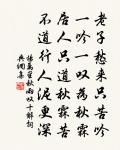 老子愁来只苦吟
一吟一叹为秋霖
居人只道秋霖苦
不道行人泥更深
杨万里秋雨叹十解诗词
典网集